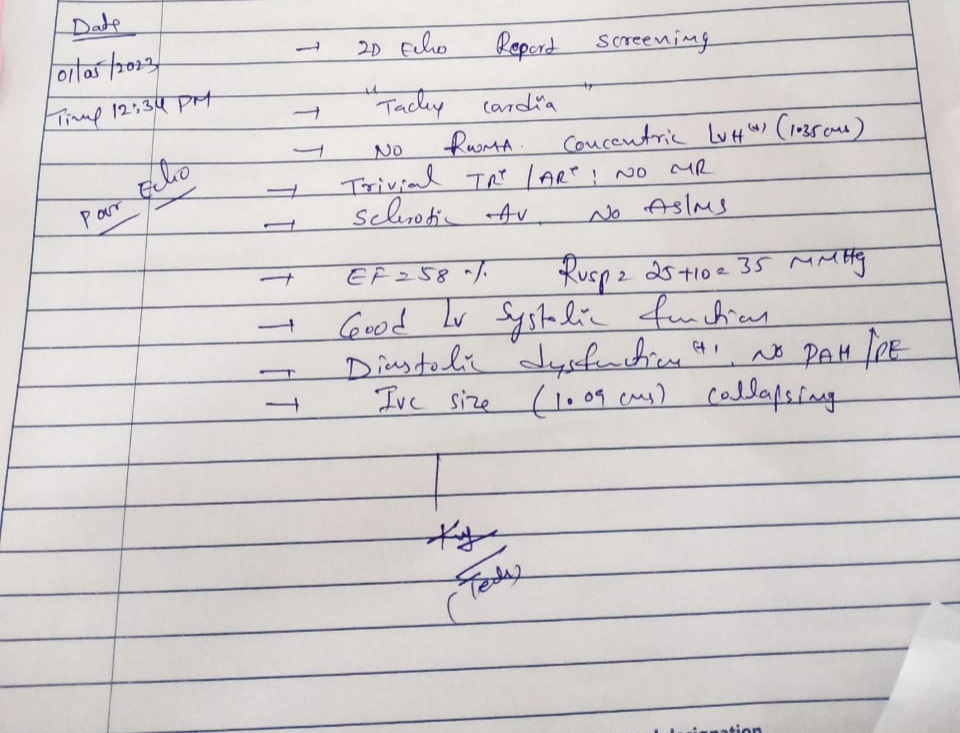 Date
01/05/2023
Time 12:34 PM
Poor Echo
→ 2D Echo Report Screening
→ "Tachy cardia"
→ NO RWMA. Concentric LVH(+) (1.35 cms)
→ Trivial TR+ / AR+ ; NO MR
→ Sclerotic AV. No AS/MS
→ EF = 58 % RVSP = 25+10 = 35 MMHg
→ Good LV Systolic function
→ Diastolic dysfunction (+). No PAH / PE
→ IVC size (1.09 cms) collapsing
(Tech)
designation